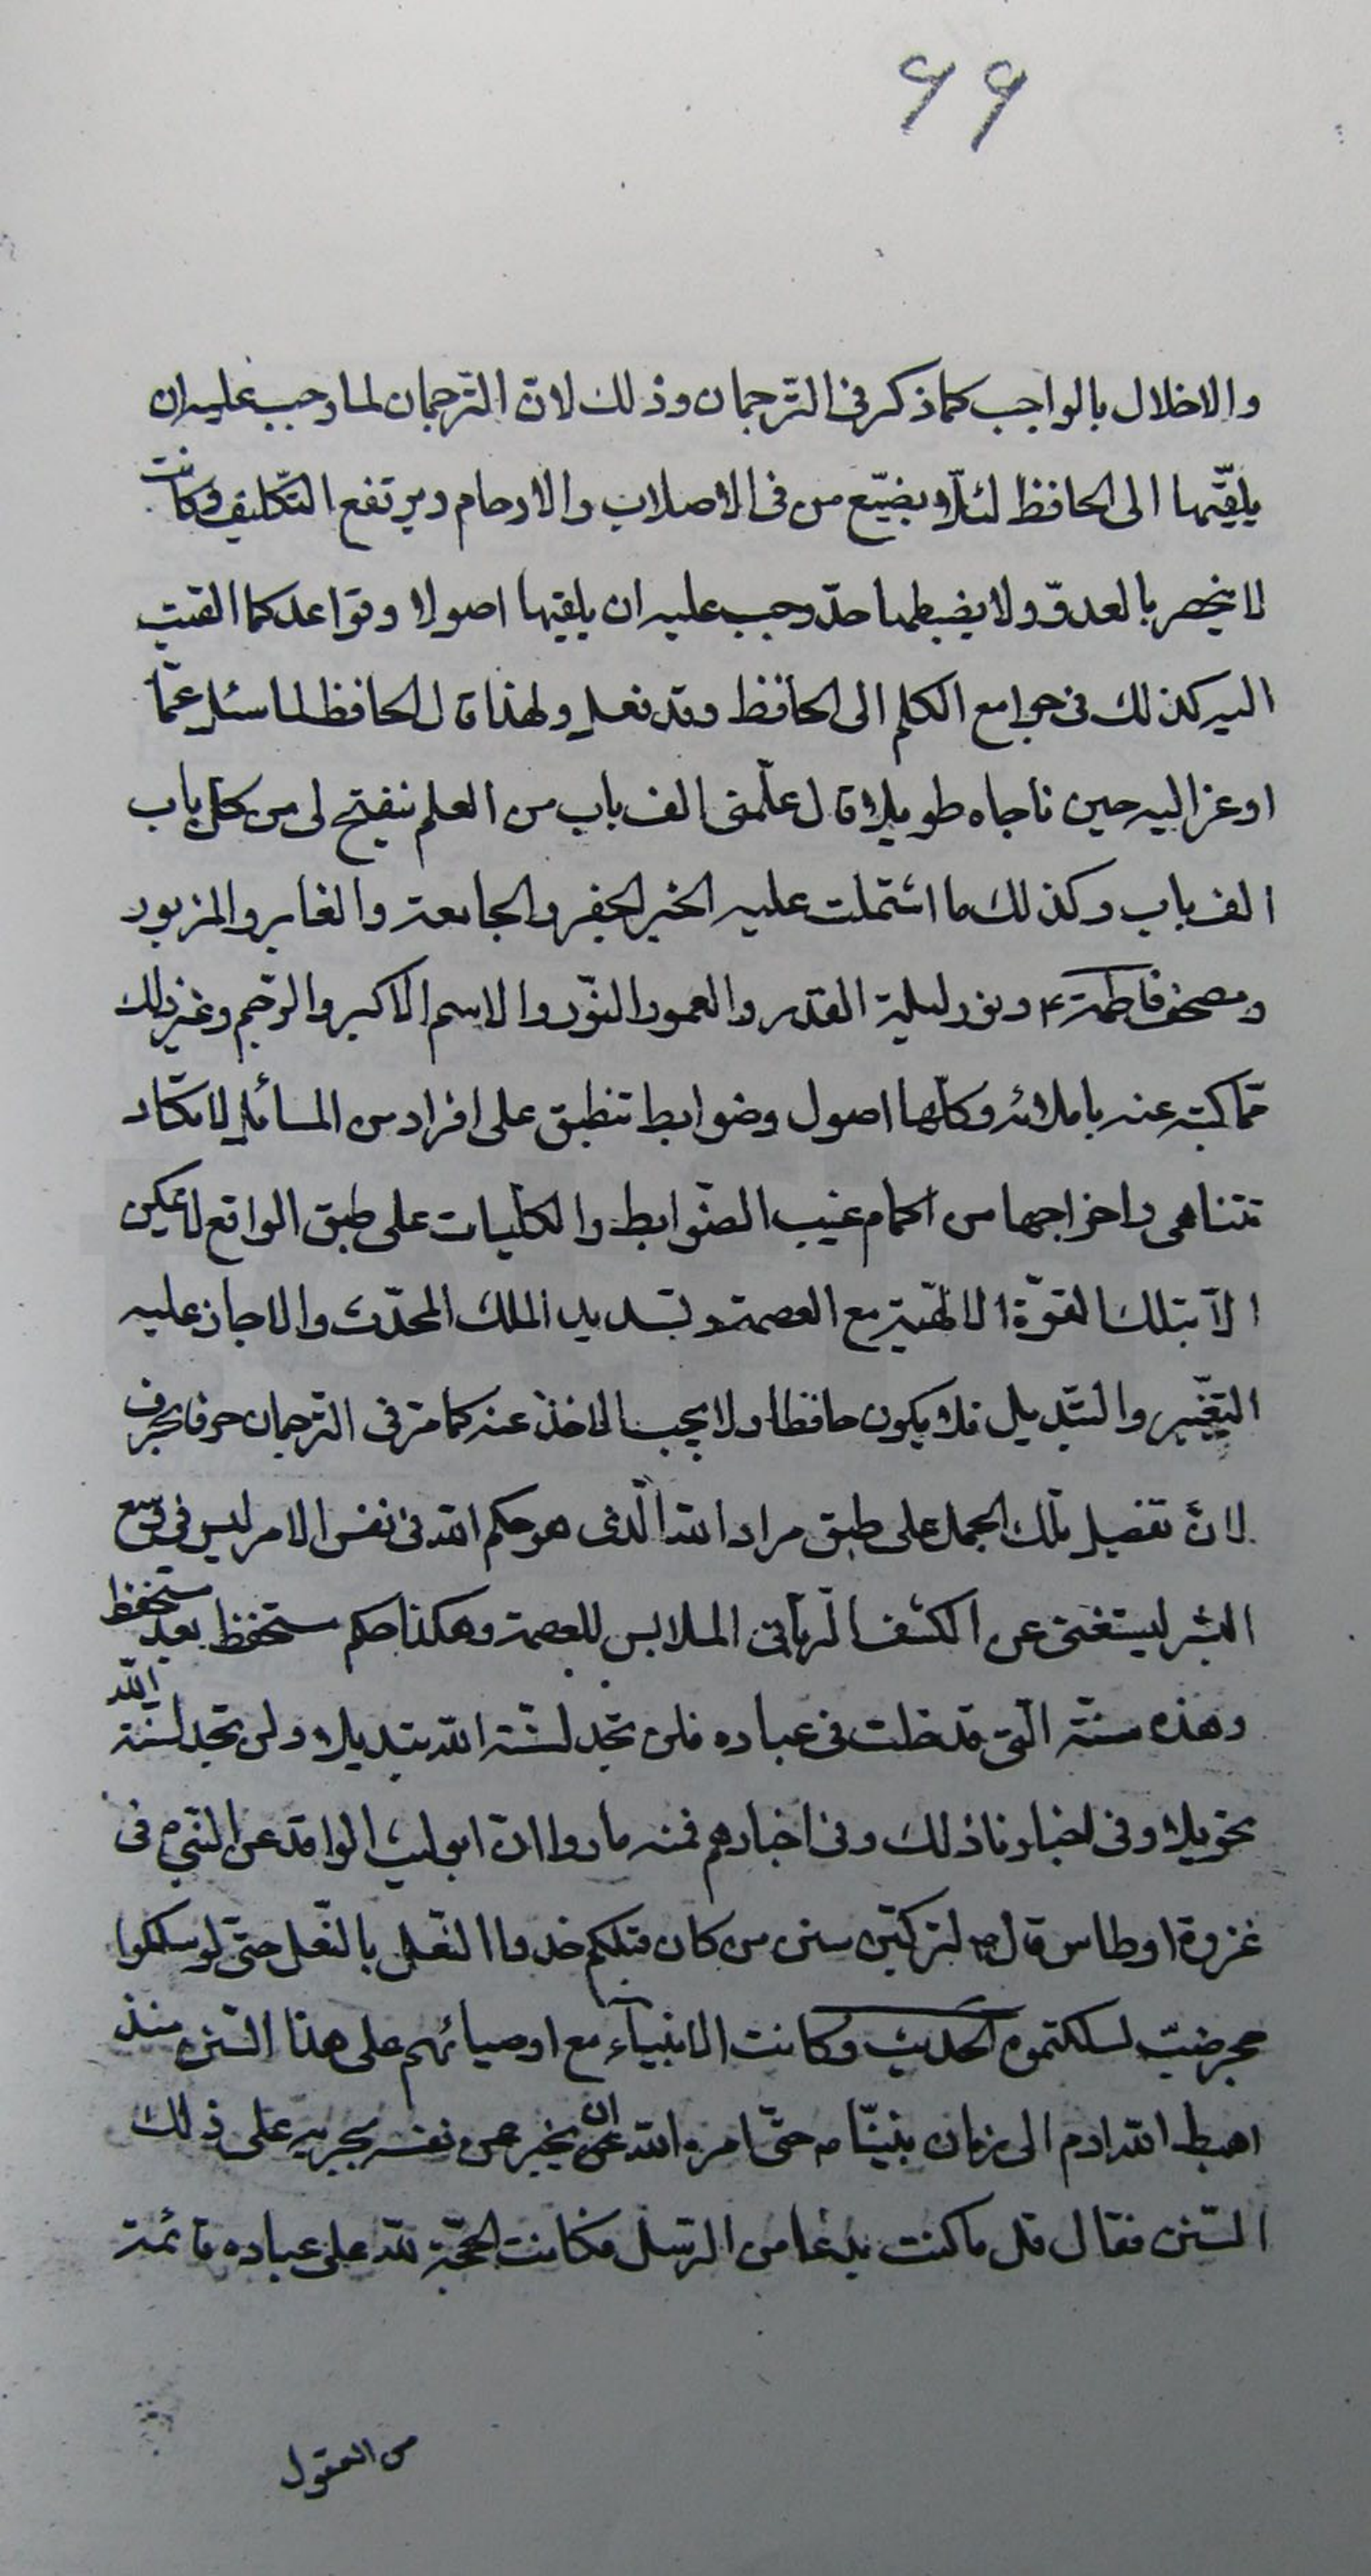 ۶۹
والاخلال بالواجب كما ذكر فى التّرجمان وذلك لانّ التّرجمان لما وجب عليه ان
يلقّيها الى الحافظ لئلّا يضيّع من فى الاصلاب والارحام ويرتفع التّكليف وكانت
لا ينحصر بالعدوّ ولا يضبطها حدّ وجب عليه ان يلقيها اصولا وقواعد كما القيت
اليه كذلك فى جوامع الكلم الى الحافظ وقد فعل ولهذا قال الحافظ لما سئل عمّا
اوعز اليه حين ناجاه طويلا قال علّمنى الف باب من العلم ينفتح لى من كلّ باب
الف باب وكذلك ما اشتملت عليه الخبر الجفر والجامعة والغابر والمزبور
ومصحف فاطمة ع ونور ليلة القدر والعمود النّور والاسم الاكبر والرّجم وغير ذلك
ممّا كتبه عنه باملائه وكلّها اصول وضوابط تنطبق على افراد من المسائل لا تكاد
تتناهى واخراجها من اكمام غيب الضّوابط والكلّيات على طبق الواقع لا يمكن
الّا بتلك القوّة الالهيّة مع العصمة وتسديد الملك المحدّث والا جاز عليه
التّغيّير والتّبديل فلا يكون حافظا ولا يجب الاخذ عنه كما مرّ فى التّرجمان حرفا بحرف
لانّ تفصيل تلك الجمل على طبق مراد الله الّذى هو حكم الله فى نفس الامر ليس فى وسع
البشر ليستغنى عن الكشف الرّبّانى الملابس للعصمة وهكذا حكم مستحفظ بعد مستحفظ
وهذه سنّة الّتى قد خلت فى عباده فلن تجد لسنّة الله تبديلا ولن تجد لسنّة الله
تحويلا وفى اخبارنا ذلك وفى اخبارهم فمنه ما رووا انّ ابو ليث الواقد عن النّبى ص فى
غزوة اوطاس قال ص لتركبّن سنن من كان قبلكم حذوا النّعل بالنّعل حتّى لو سلكوا
حجر ضبّ لسلكتموه الحديث وكانت الانبياء مع اوصيائهم على هذا السّنن منذ
اهبط الله ادم الى زمان نبيّنا ص حتّى امره الله ان يخبر عن نفسه بجريه على ذلك
السّنن فقال قل ما كنت بدعا من الرّسل فكانت الحجّة لله على عباده قائمة
من العقول